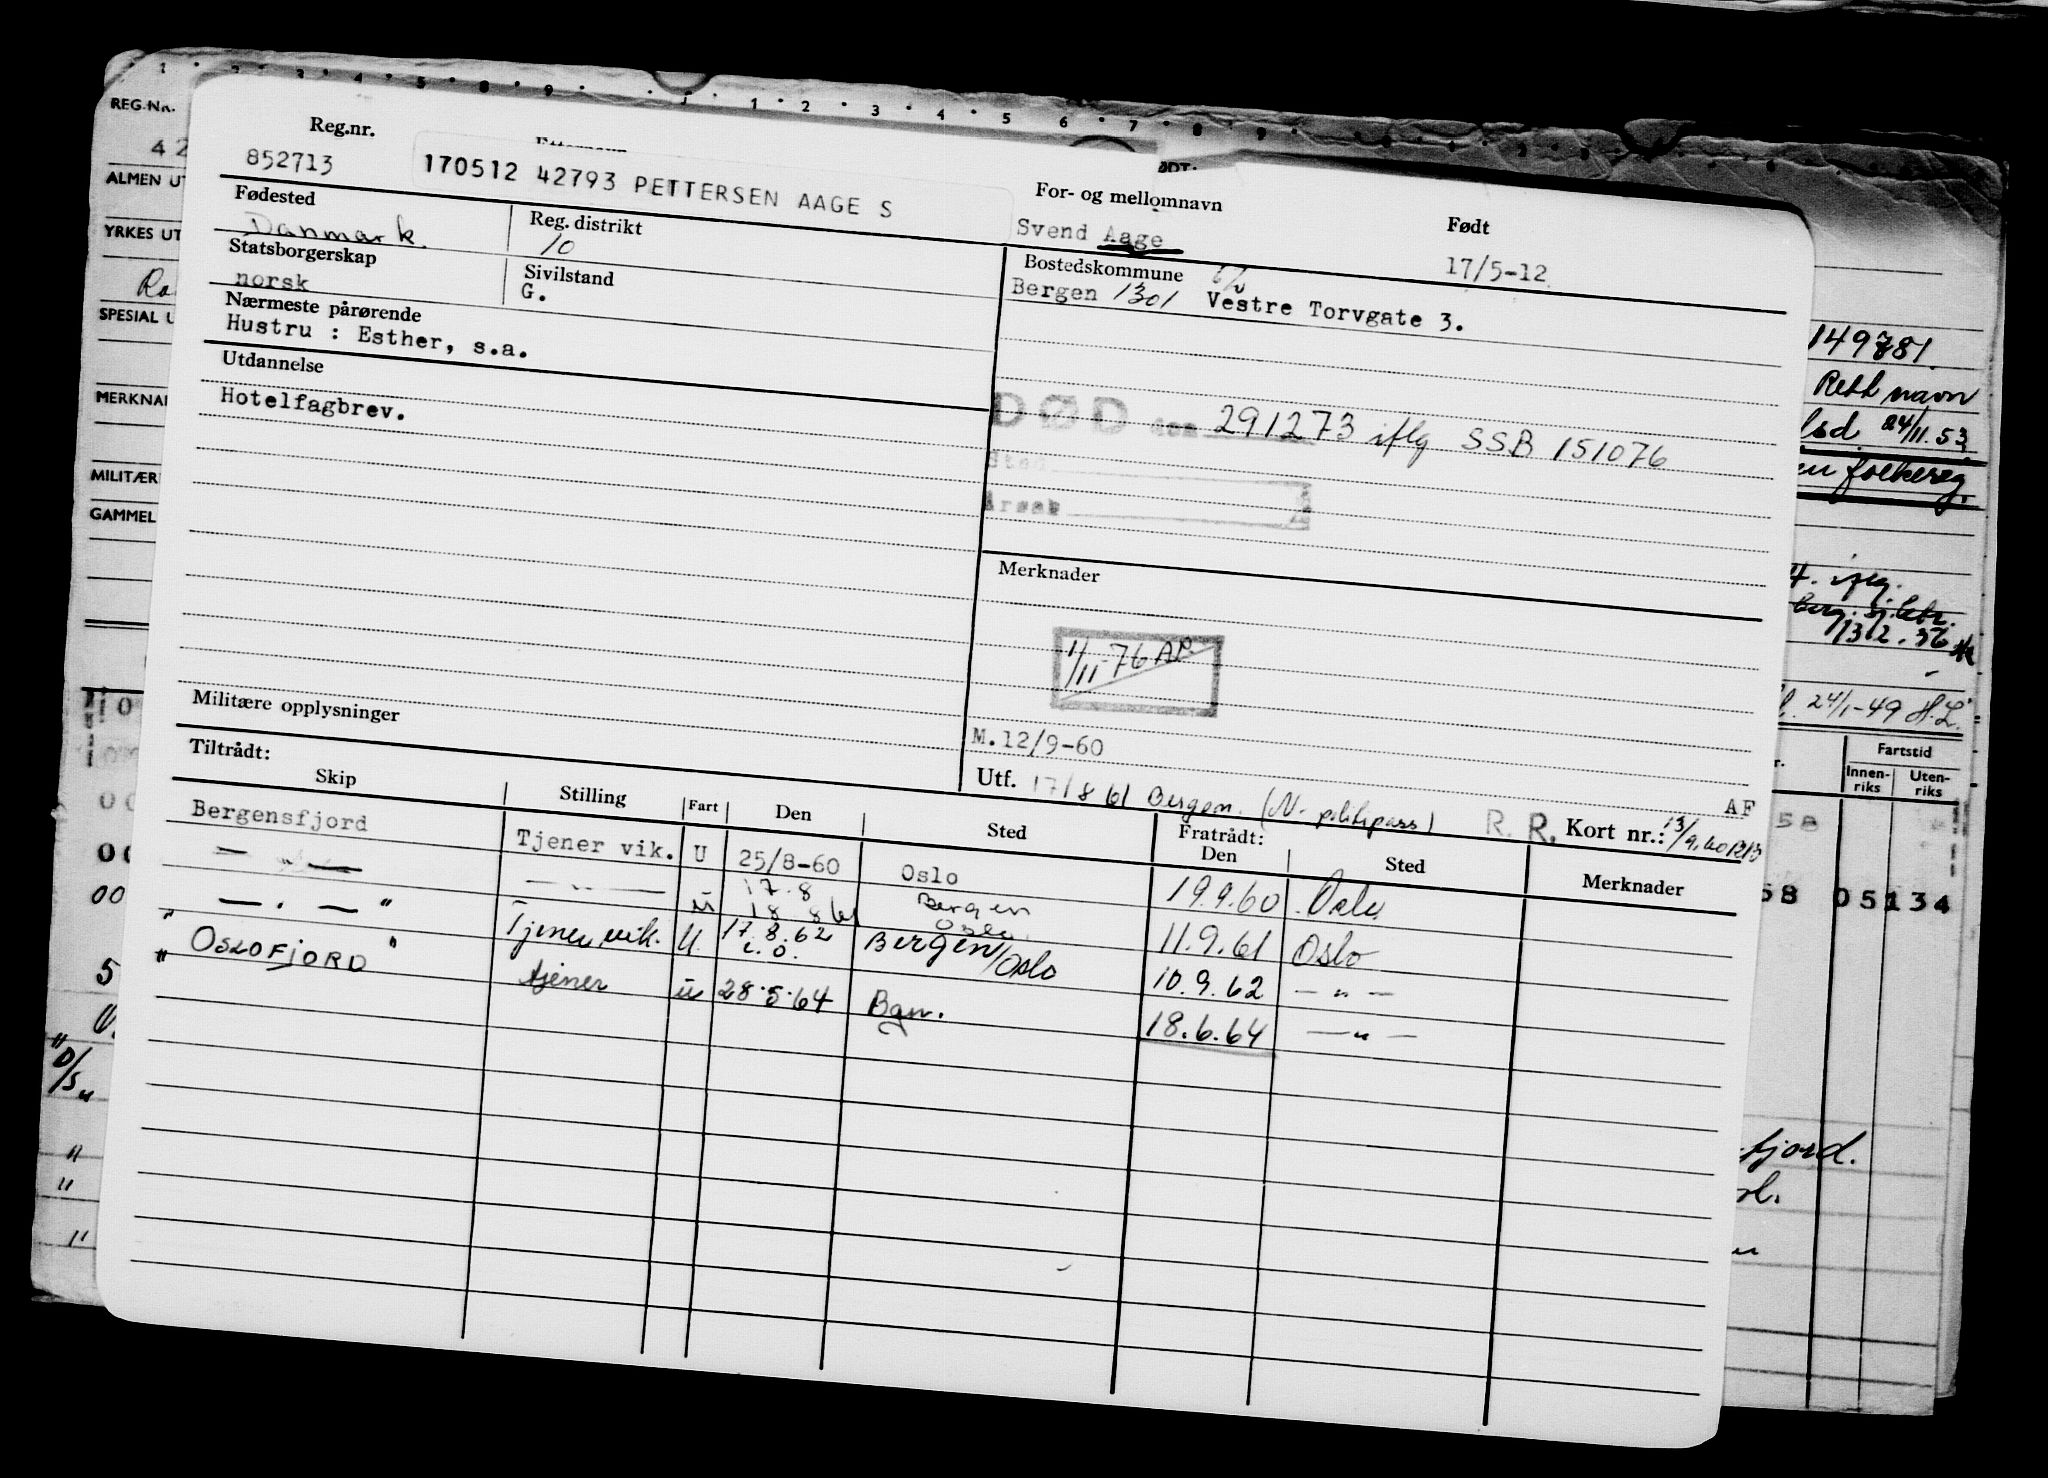 1 2 3 4 5 8 9 1 2 3 4 5 6 7 8 9
REG.NR.
42
ALMEN UT
YRKES UT
SPESIAL U
MERKNA
MILITÆR
GAMMEL
Reg.nr.
852713
170512 42793 PETTERSEN AAGE S
For- og mellomnavn
Svend Aage
Født
17/5-12
Fødested
Danmark.
Reg. distrikt
10
Statsborgerskap
norsk
Sivilstand
G.
Bostedskommune
Bergen 1301 Vestre Torvgate 3.
Nærmeste pårørende
Hustru : Esther, s.a.
Utdannelse
Hotelfagbrev.
DØD den 291273 iflg SSB 151076
Sted
Årsak
Merknader
1/11-76 AP.
Militære opplysninger
M.12/9-60
Utf. 17/8 61 Bergen. (N. politipass) R. R.
AF
Kort nr.: 13/9.60
Tiltrådt:
Skip Stilling Fart Den Sted Fratrådt: Den Sted Merknader
Bergensfjord Tjener vik. U 25/8-60 Oslo 19.9.60 Oslo
— " — — " — u 17.8 Bergen 11.9.61 Oslo
18 8 61 Oslo
— . — " Tjener vik. U. 17.8.62 Bergen/Oslo 10.9.62 — " —
i.o.
" OSLOFJORD " tjener u 28.5.64 Bgn. 18.6.64 — " —
149781
Rett navn
lsd 24/11.53
en folkereg.
4. iflg.
Berg. sj.
13.2.56
24/1-49 H.L.
Fartstid
Innen-riks Uten-riks
58
58 05134
fjord.
5
"D/S"
"
"
"